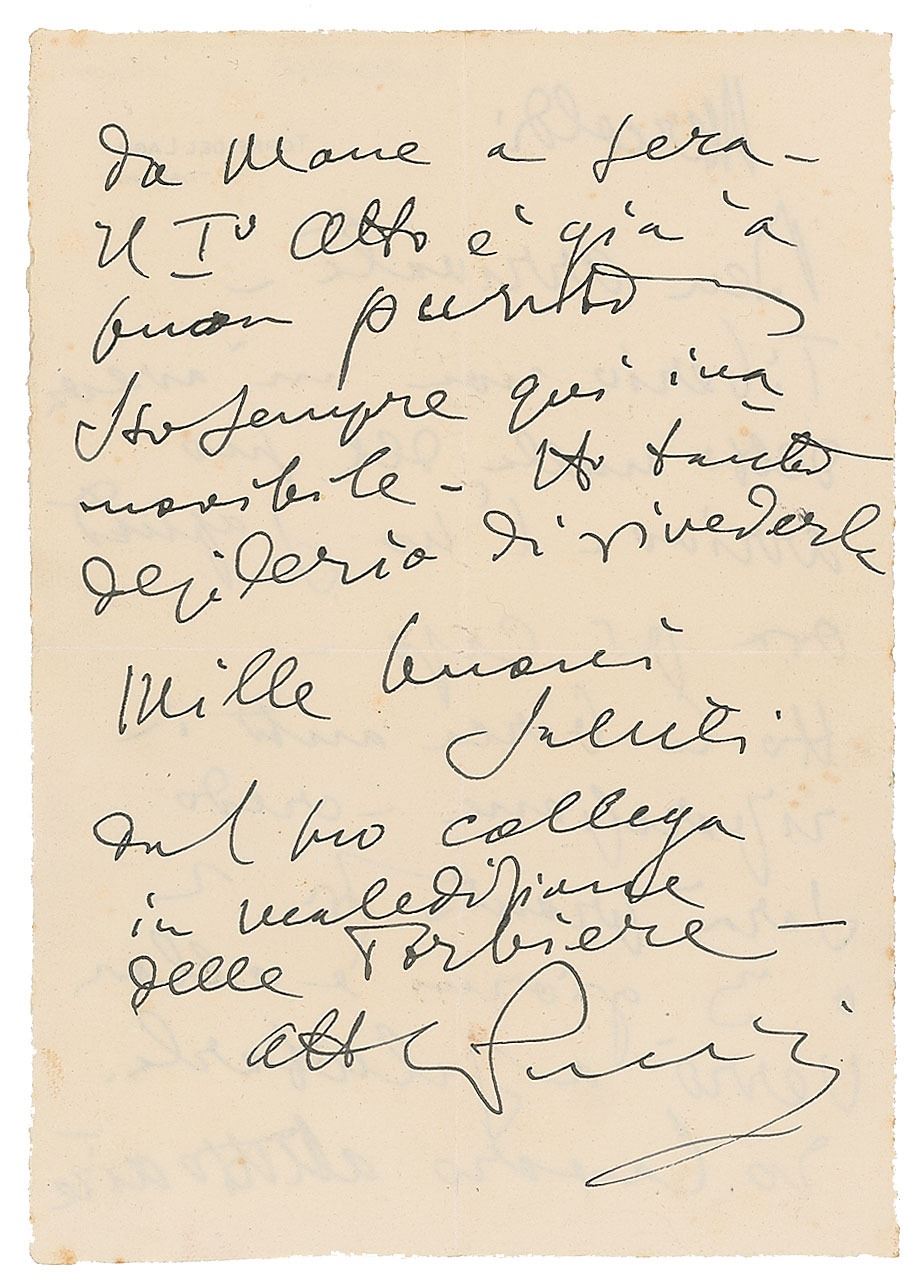 da mane a sera -
Il I° Atto è già a
buon punto
Sto sempre qui ina
movibile - Ho tanto
desiderio di rivederla
Mille buoni
saluti
dal suo collega
in maledizione
delle Torbiere -
aff GPuccini